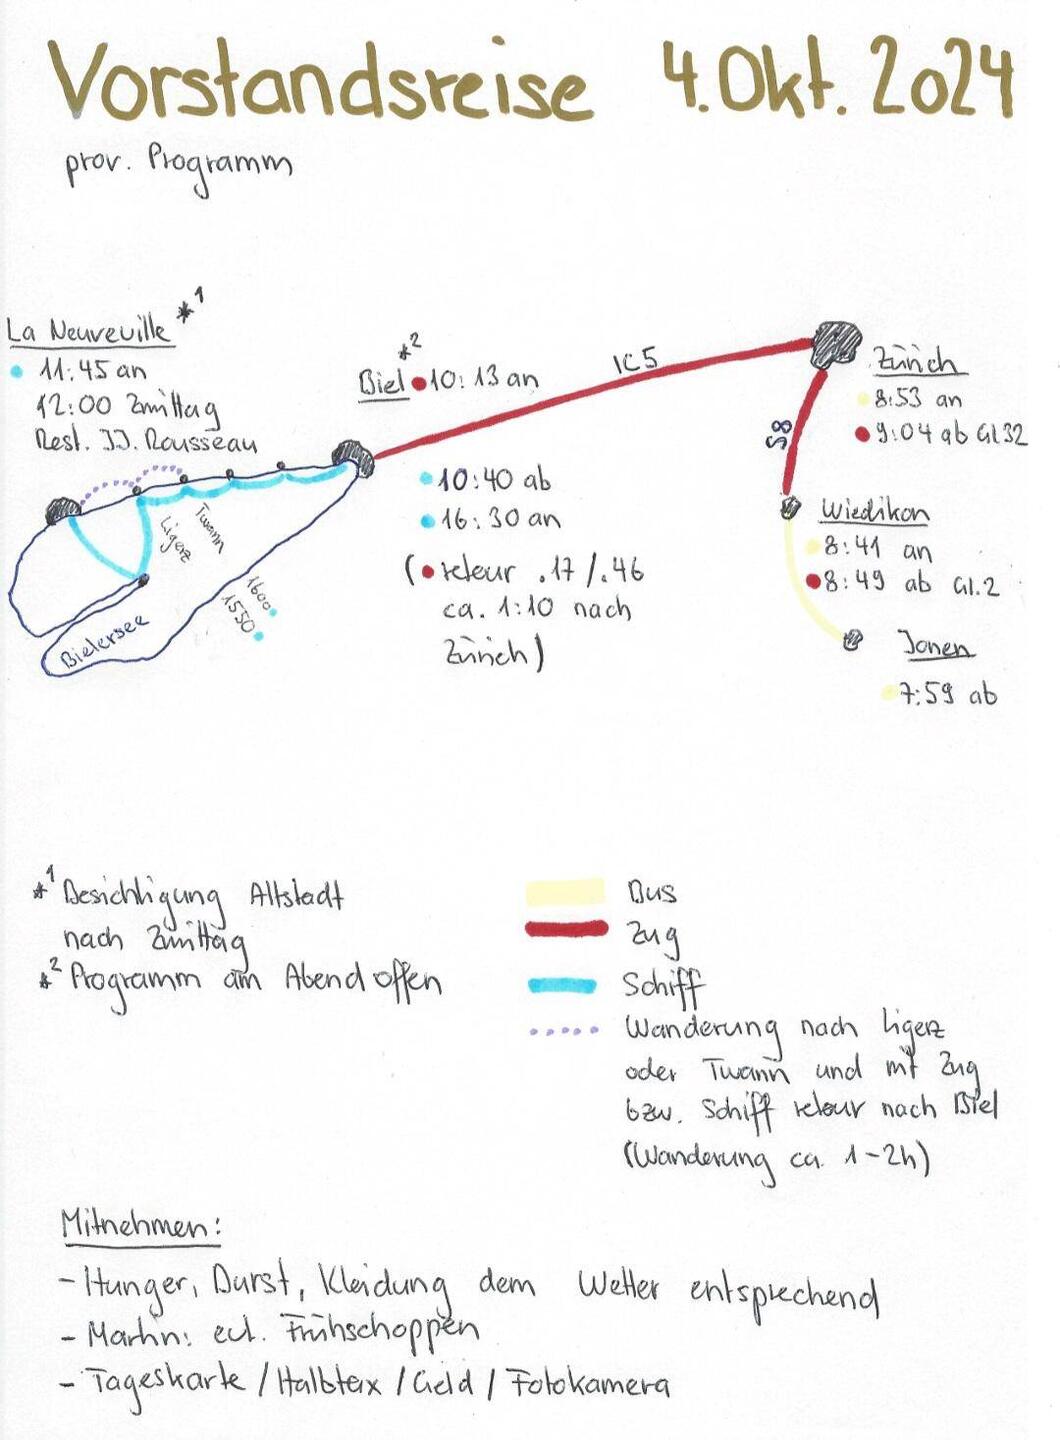 Vorstandsreise 4. Okt. 2024
prov. Programm
La Neuveville *1
11:45 an
12:00 Zmittag
Rest. JJ. Rousseau
*2
Biel 10:13 an
IC5
Zürich
8:53 an
9:04 ab Gl 32
S8
10:40 ab
16:30 an
(retour .17/.46
ca. 1:10 nach
Zürich)
Wiedikon
8:41 an
8:49 ab Gl. 2
Jonen
7:59 ab
Twann
Ligerz
1600
1550
Bielersee
*1 Besichtigung Altstadt
nach Zmittag
*2 Programm am Abend offen
Bus
Zug
Schiff
Wanderung nach Ligerz
oder Twann und mit Zug
bzw. Schiff retour nach Biel
(Wanderung ca. 1-2h)
Mitnehmen:
- Hunger, Durst, Kleidung dem Wetter entsprechend
- Martin: ect. Frühschoppen
- Tageskarte / Halbtax / Geld / Fotokamera